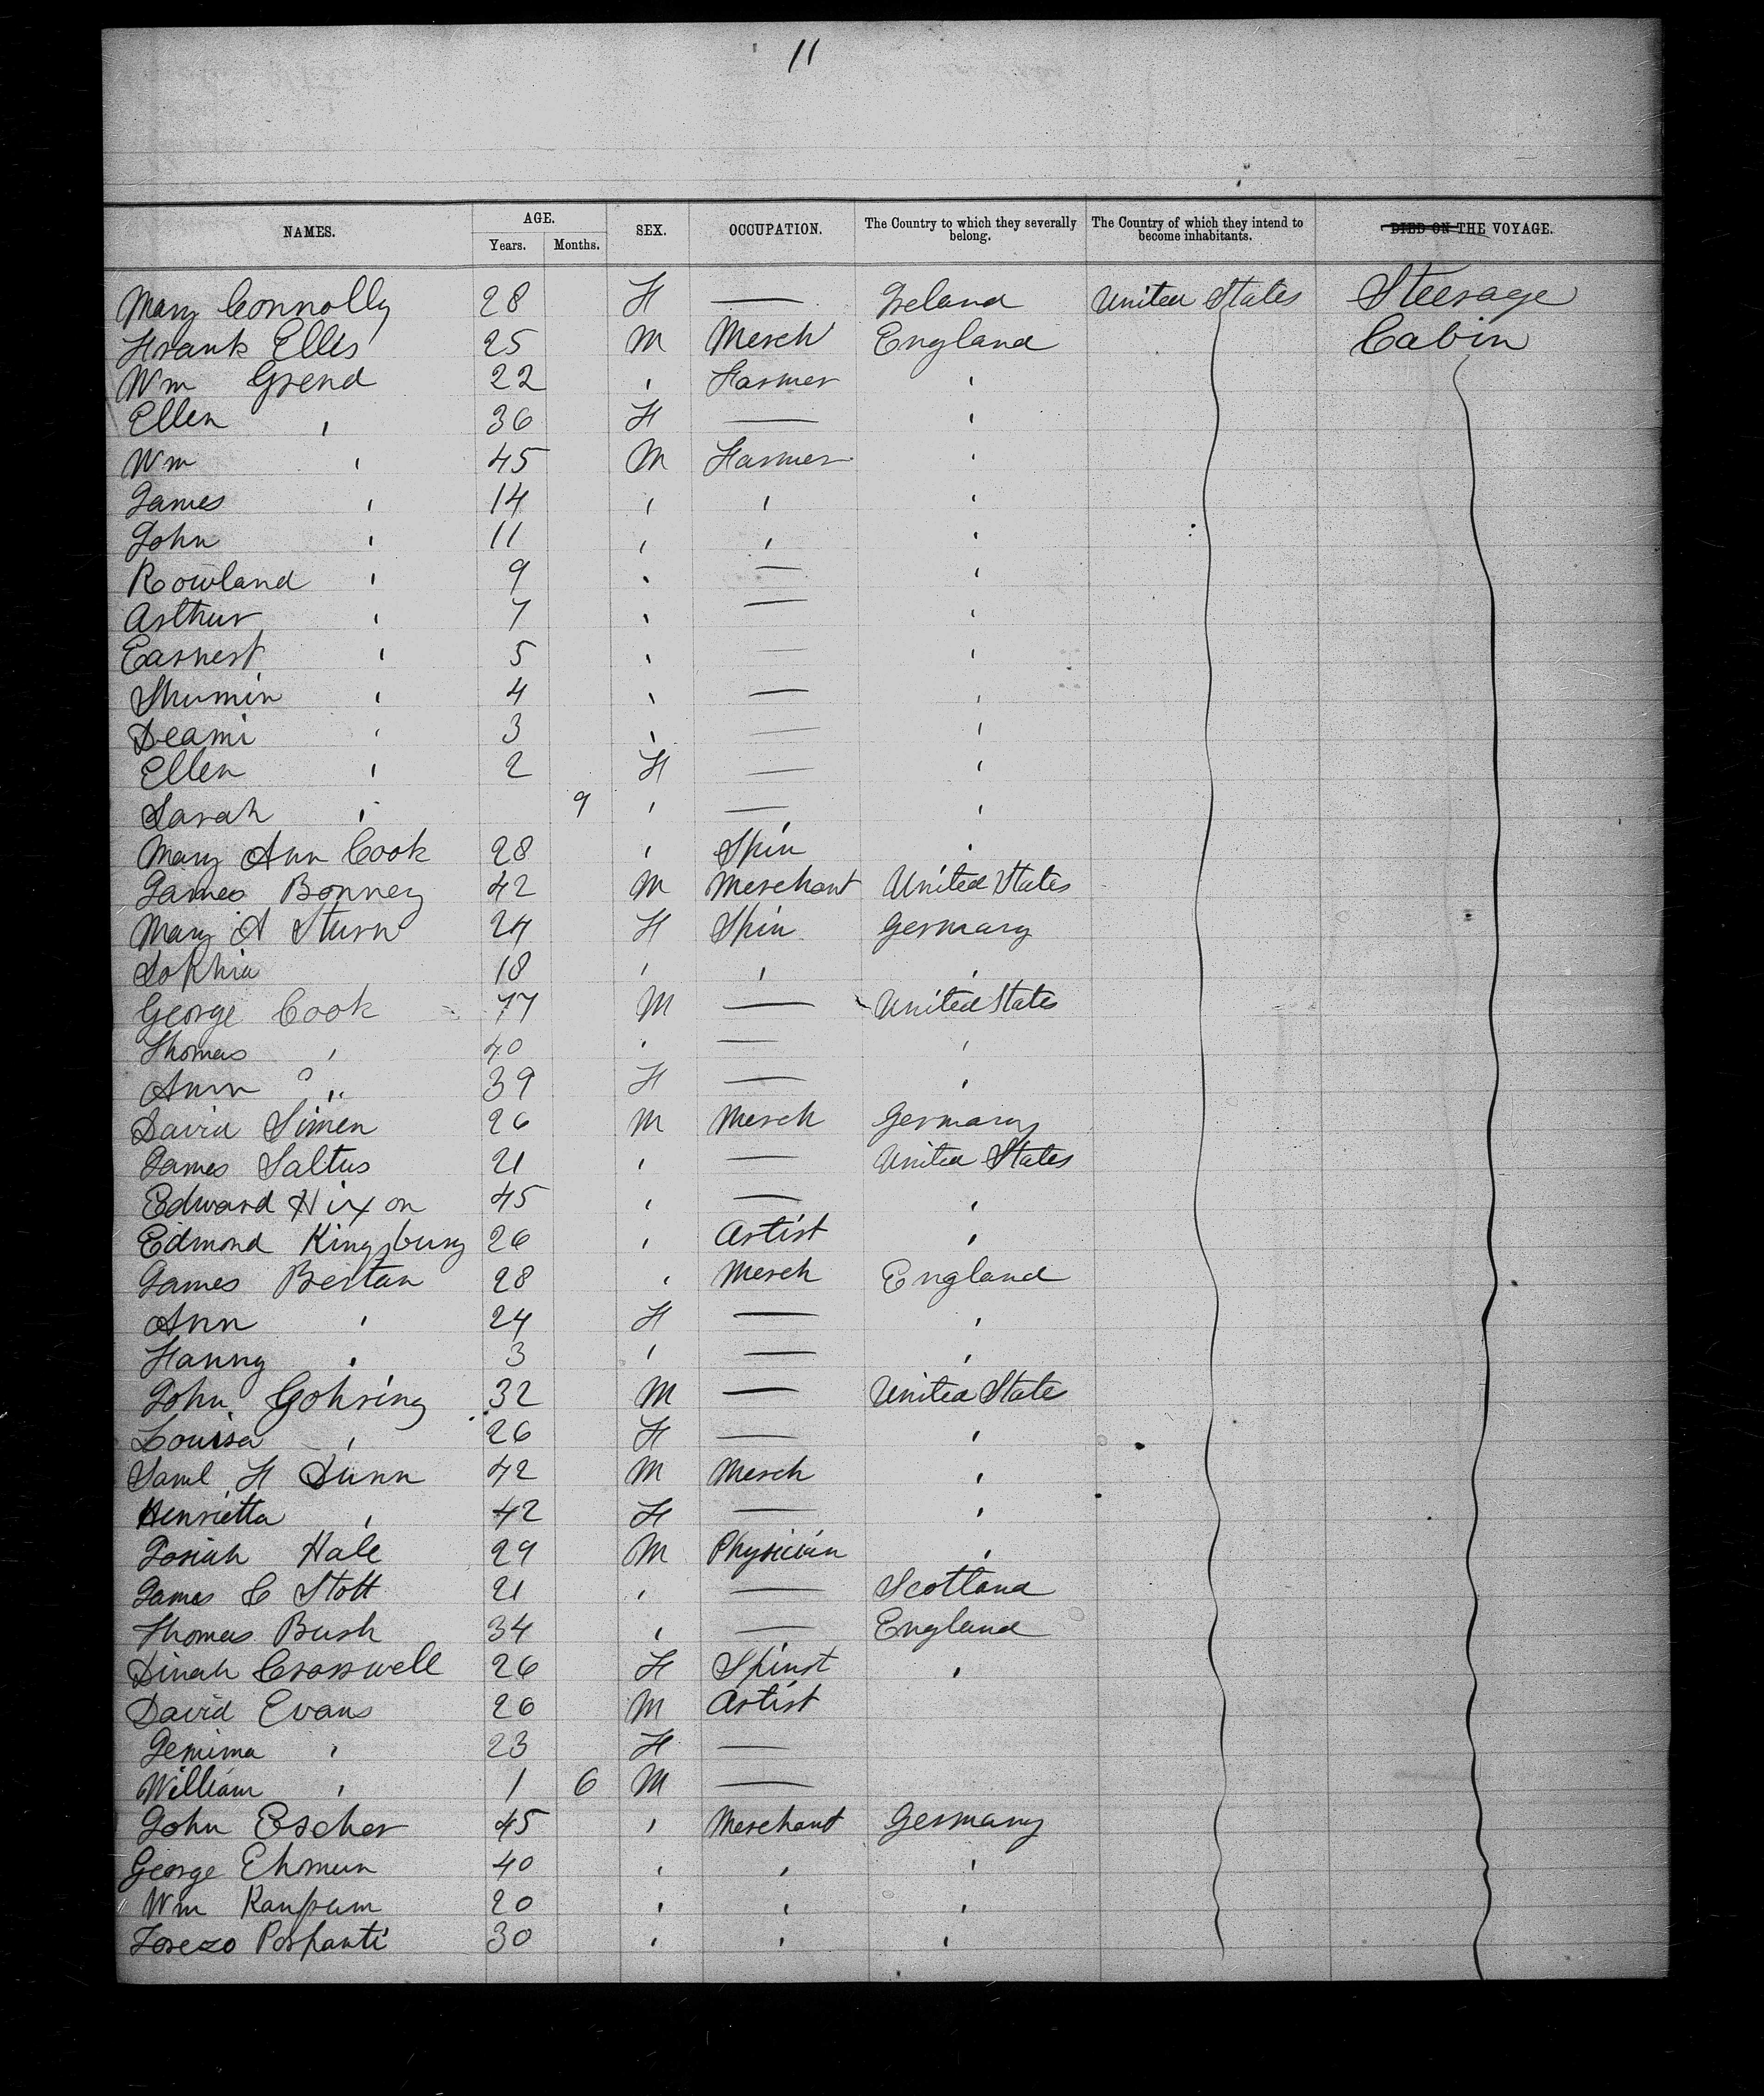 11
NAMES. AGE. Years. Months. SEX. OCCUPATION. The Country to which they severally belong. The Country of which they intend to become inhabitants. DIED ON THE VOYAGE.
Mary Connolly 28 F — Ireland United States Steerage
Frank Ellis 25 M Merch England Cabin
Wm Grend 22 " Farmer "
Ellen " 36 F — "
Wm " 45 M Farmer "
James " 14 " " "
John " 11 " " "
Rowland " 9 " — "
Arthur " 7 " — "
Earnest " 5 " — "
Shumin " 4 " — "
Deami " 3 " — "
Ellen " 2 F — "
Sarah " 9 " — "
Mary Ann Cook 28 " Spin "
James Bonney 42 M Merchant United States
Mary A Sturn 24 F Spin Germany
Sophia 18 " " "
George Cook 77 M — United States
Thomas " 40 " — "
Ann " 39 F — "
David Simen 26 M Merch Germany
James Saltus 21 " — United States
Edward Hixon 45 " — "
Edmond Kingsbury 26 " Artist "
James Bertan 28 " Merch England
Ann " 24 F — "
Fanny " 3 " — "
John Gohring 32 M — United State
Louisa " 26 F — "
Saml F Dunn 42 M Merch "
Henrietta " 42 F — "
Josiah Hale 29 M Physician "
James C Stott 21 " — Scotland
Thomas Bush 34 " — England
Dinah Crosswell 26 F Spinst "
David Evans 26 M Artist
Jemima " 23 F —
William " 1 6 M —
John Escher 45 " Merchant Germany
George Ehmun 40 " " "
Wm 20 " " "
30 " " "